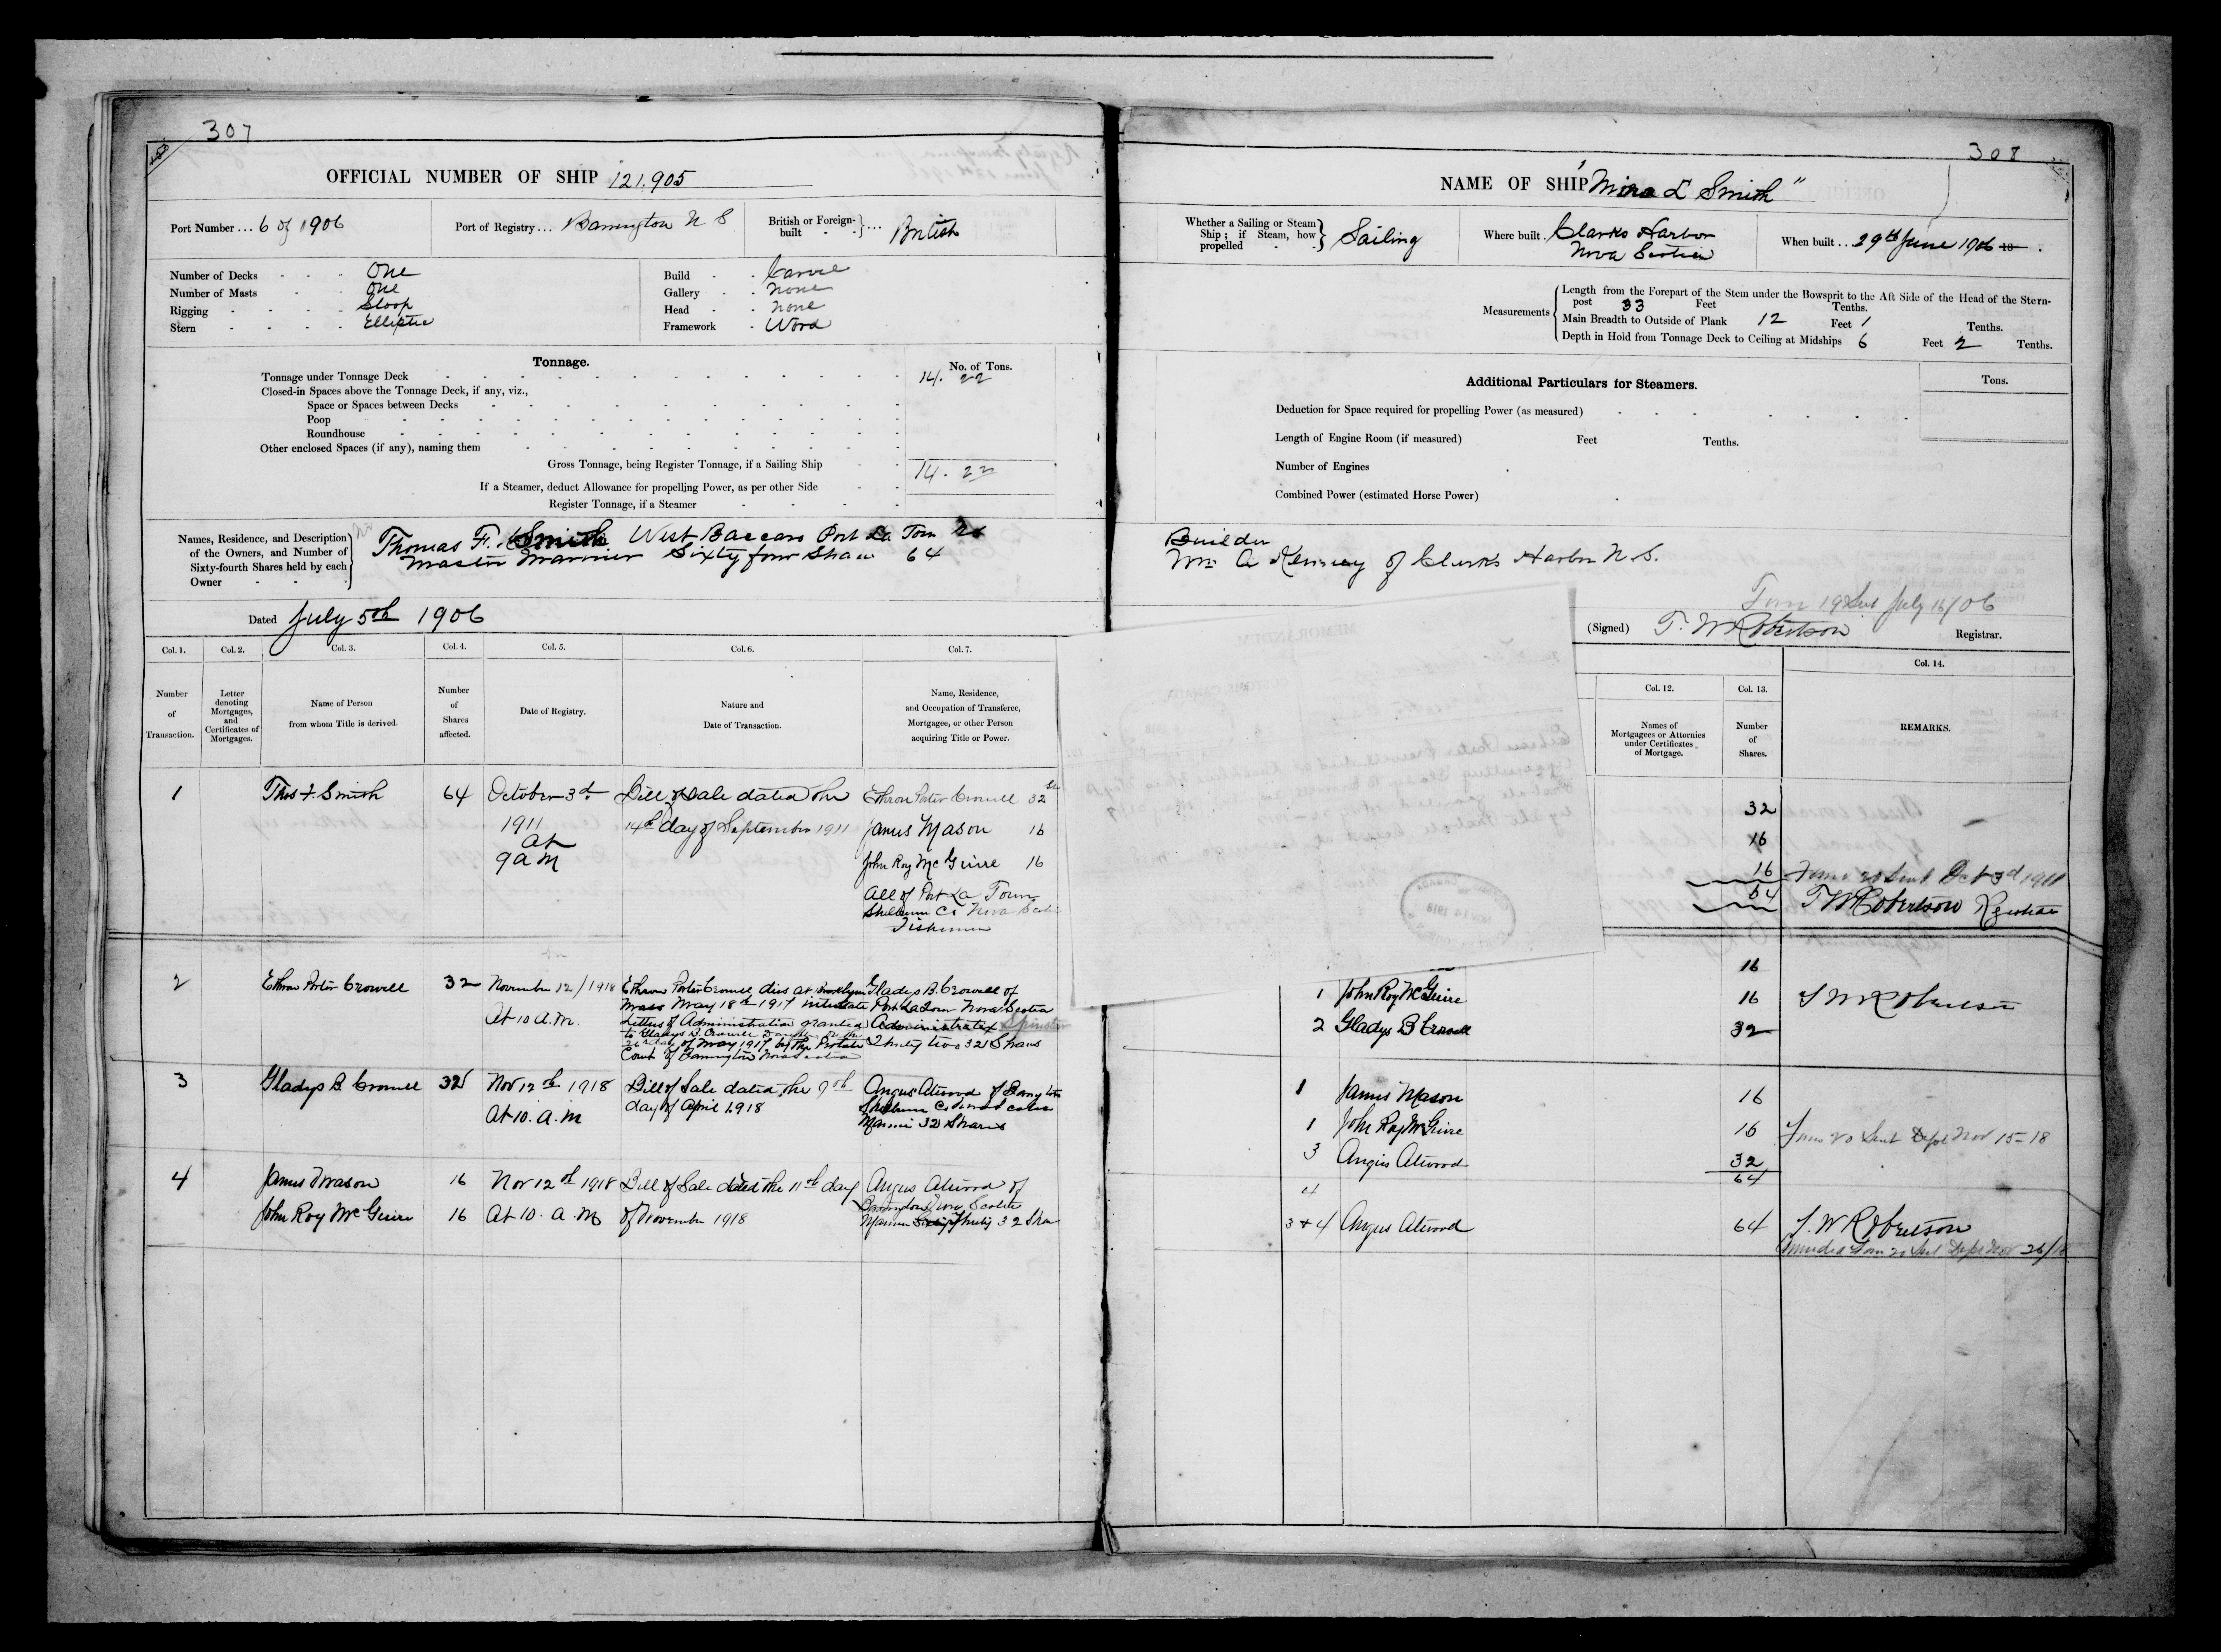 307
OFFICIAL NUMBER OF SHIP 121.905
Port Number... 6 of 1906
Port of Registry... Barrington N S
British or Foreign-built - - }... British
Number of Decks - - - One
Number of Masts - - One
Rigging - - - - Sloop
Stern - - - - Elliptic
Build - - Carvel
Gallery - - None
Head - - None
Framework - Wood
Tonnage.
No. of Tons.
Tonnage under Tonnage Deck 14. 22
Closed-in Spaces above the Tonnage Deck, if any, viz.,
Space or Spaces between Decks
Poop
Roundhouse
Other enclosed Spaces (if any), naming them
Gross Tonnage, being Register Tonnage, if a Sailing Ship 14. 22
If a Steamer, deduct Allowance for propelling Power, as per other Side
Register Tonnage, if a Steamer
Names, Residence, and Description of the Owners, and Number of Sixty-fourth Shares held by each Owner
Thomas F. Smith West Baccaro Port La Tour NS
Master Mariner Sixty four Shares 64
Dated July 5th 1906
Col. 1. Col. 2. Col. 3. Col. 4. Col. 5. Col. 6. Col. 7.
Number of Transaction.
Letter denoting Mortgages, and Certificates of Mortgages.
Name of Person from whom Title is derived.
Number of Shares affected.
Date of Registry.
Nature and Date of Transaction.
Name, Residence, and Occupation of Transferee, Mortgagee, or other Person acquiring Title or Power.
1 Thos F. Smith 64 October 3d 1911 at 9 a m
Bill of Sale dated the
14th day of September 1911
Ethron Porter Crowell 32
James Mason 16
John Roy McGuire 16
All of Port La Tour
Shelburne Co Nova Scotia
Fishermen
2 Ethron Porter Crowell 32 November 12/1918 At 10 A.M.
Ethron Porter Crowell dies at Brooklyn
Mass May 18th 1917 intestate
Letters of Administration granted
to Gladys B. Crowell Daughter on the
26th day of May 1917 by the Probate
Court of Barrington Nova Scotia
Gladys B. Crowell of
Port La Tour Nova Scotia
Administratrix Spinster
Thirty two 32 Shares
3 Gladys B. Crowell 32 Nov 12th 1918 At 10. a. m
Bill of Sale dated the 9th
day of April 1918
Angus Atwood of Barrington
Shelburne Co Nova Scotia
Mariner 32 Shares
4 James Mason 16 Nov 12th 1918
John Roy McGuire 16 At 10. A. M
Bill of Sale dated the 11th day
of November 1918
Angus Atwood of
Barrington Nova Scotia
Mariner Thirty 32 Shares
308
NAME OF SHIP "Mina L Smith"
Whether a Sailing or Steam Ship; if Steam, how propelled - - } Sailing
Where built. Clarks Harbor
Nova Scotia
When built... 29th June 1906 18 .
Measurements
Length from the Forepart of the Stem under the Bowsprit to the Aft Side of the Head of the Stern-
post 33 Feet Tenths.
Main Breadth to Outside of Plank 12 Feet 1 Tenths.
Depth in Hold from Tonnage Deck to Ceiling at Midships 6 Feet 2 Tenths.
Additional Particulars for Steamers.
Tons.
Deduction for Space required for propelling Power (as measured)
Length of Engine Room (if measured) Feet Tenths.
Number of Engines
Combined Power (estimated Horse Power)
Builder
Wm A Kenney of Clarks Harbor N.S.
Form 19 Sent July 16/06
(Signed) T. W Robertson Registrar.
Col. 12. Col. 13. Col. 14.
Names of Mortgagees or Attornies under Certificates of Mortgage.
Number of Shares.
REMARKS.
32
16
16 Form 20 Sent Oct 3d 1911
64 T W Robertson Registrar
16
1 John Roy McGuire 16 T W Robertson
2 Gladys B Crowell 32
1 James Mason 16
1 John Roy McGuire 16 Form 20 Sent Dept Nov 15-18
3 Angus Atwood 32
64
4
3 + 4 Angus Atwood 64 T. W Robertson
Amended Form 20 Sent Dept Nov 26/18